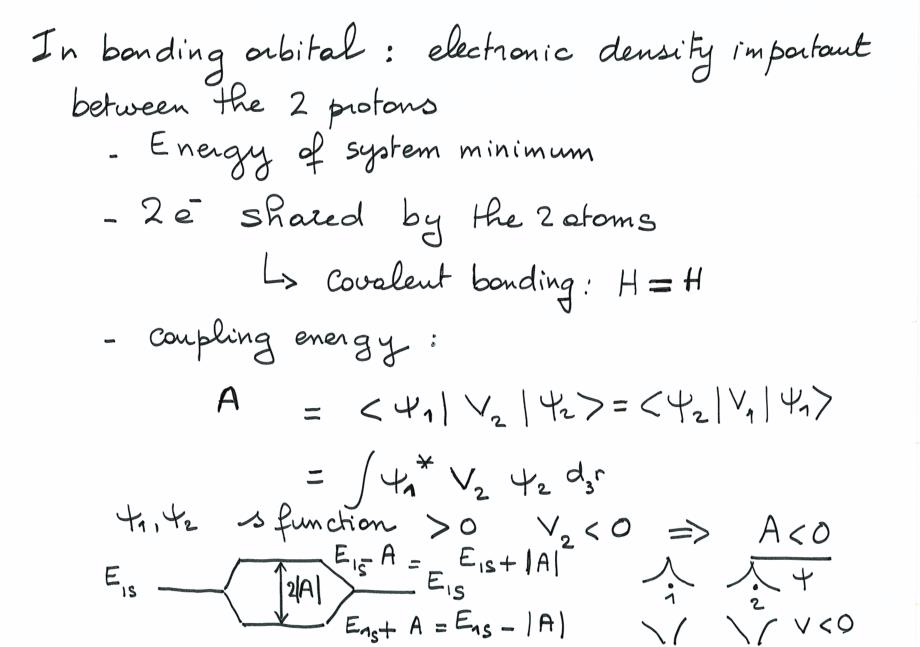 In bonding orbital : electronic density important
between the 2 protons
- Energy of system minimum
- 2 e⁻ shared by the 2 atoms
↳ Covalent bonding : H = H
- coupling energy :
A = <Ψ₁| V₂ |Ψ₂> = <Ψ₂|V₁|Ψ₁>
= ∫ Ψ₁* V₂ Ψ₂ d₃r
Ψ₁, Ψ₂ s function > 0 V₂ < 0 ⇒ A < 0
E₁ₛ - A = E₁ₛ + |A|
E₁ₛ 2|A| E₁ₛ 1 2 +
E₁ₛ + A = E₁ₛ - |A| V < 0